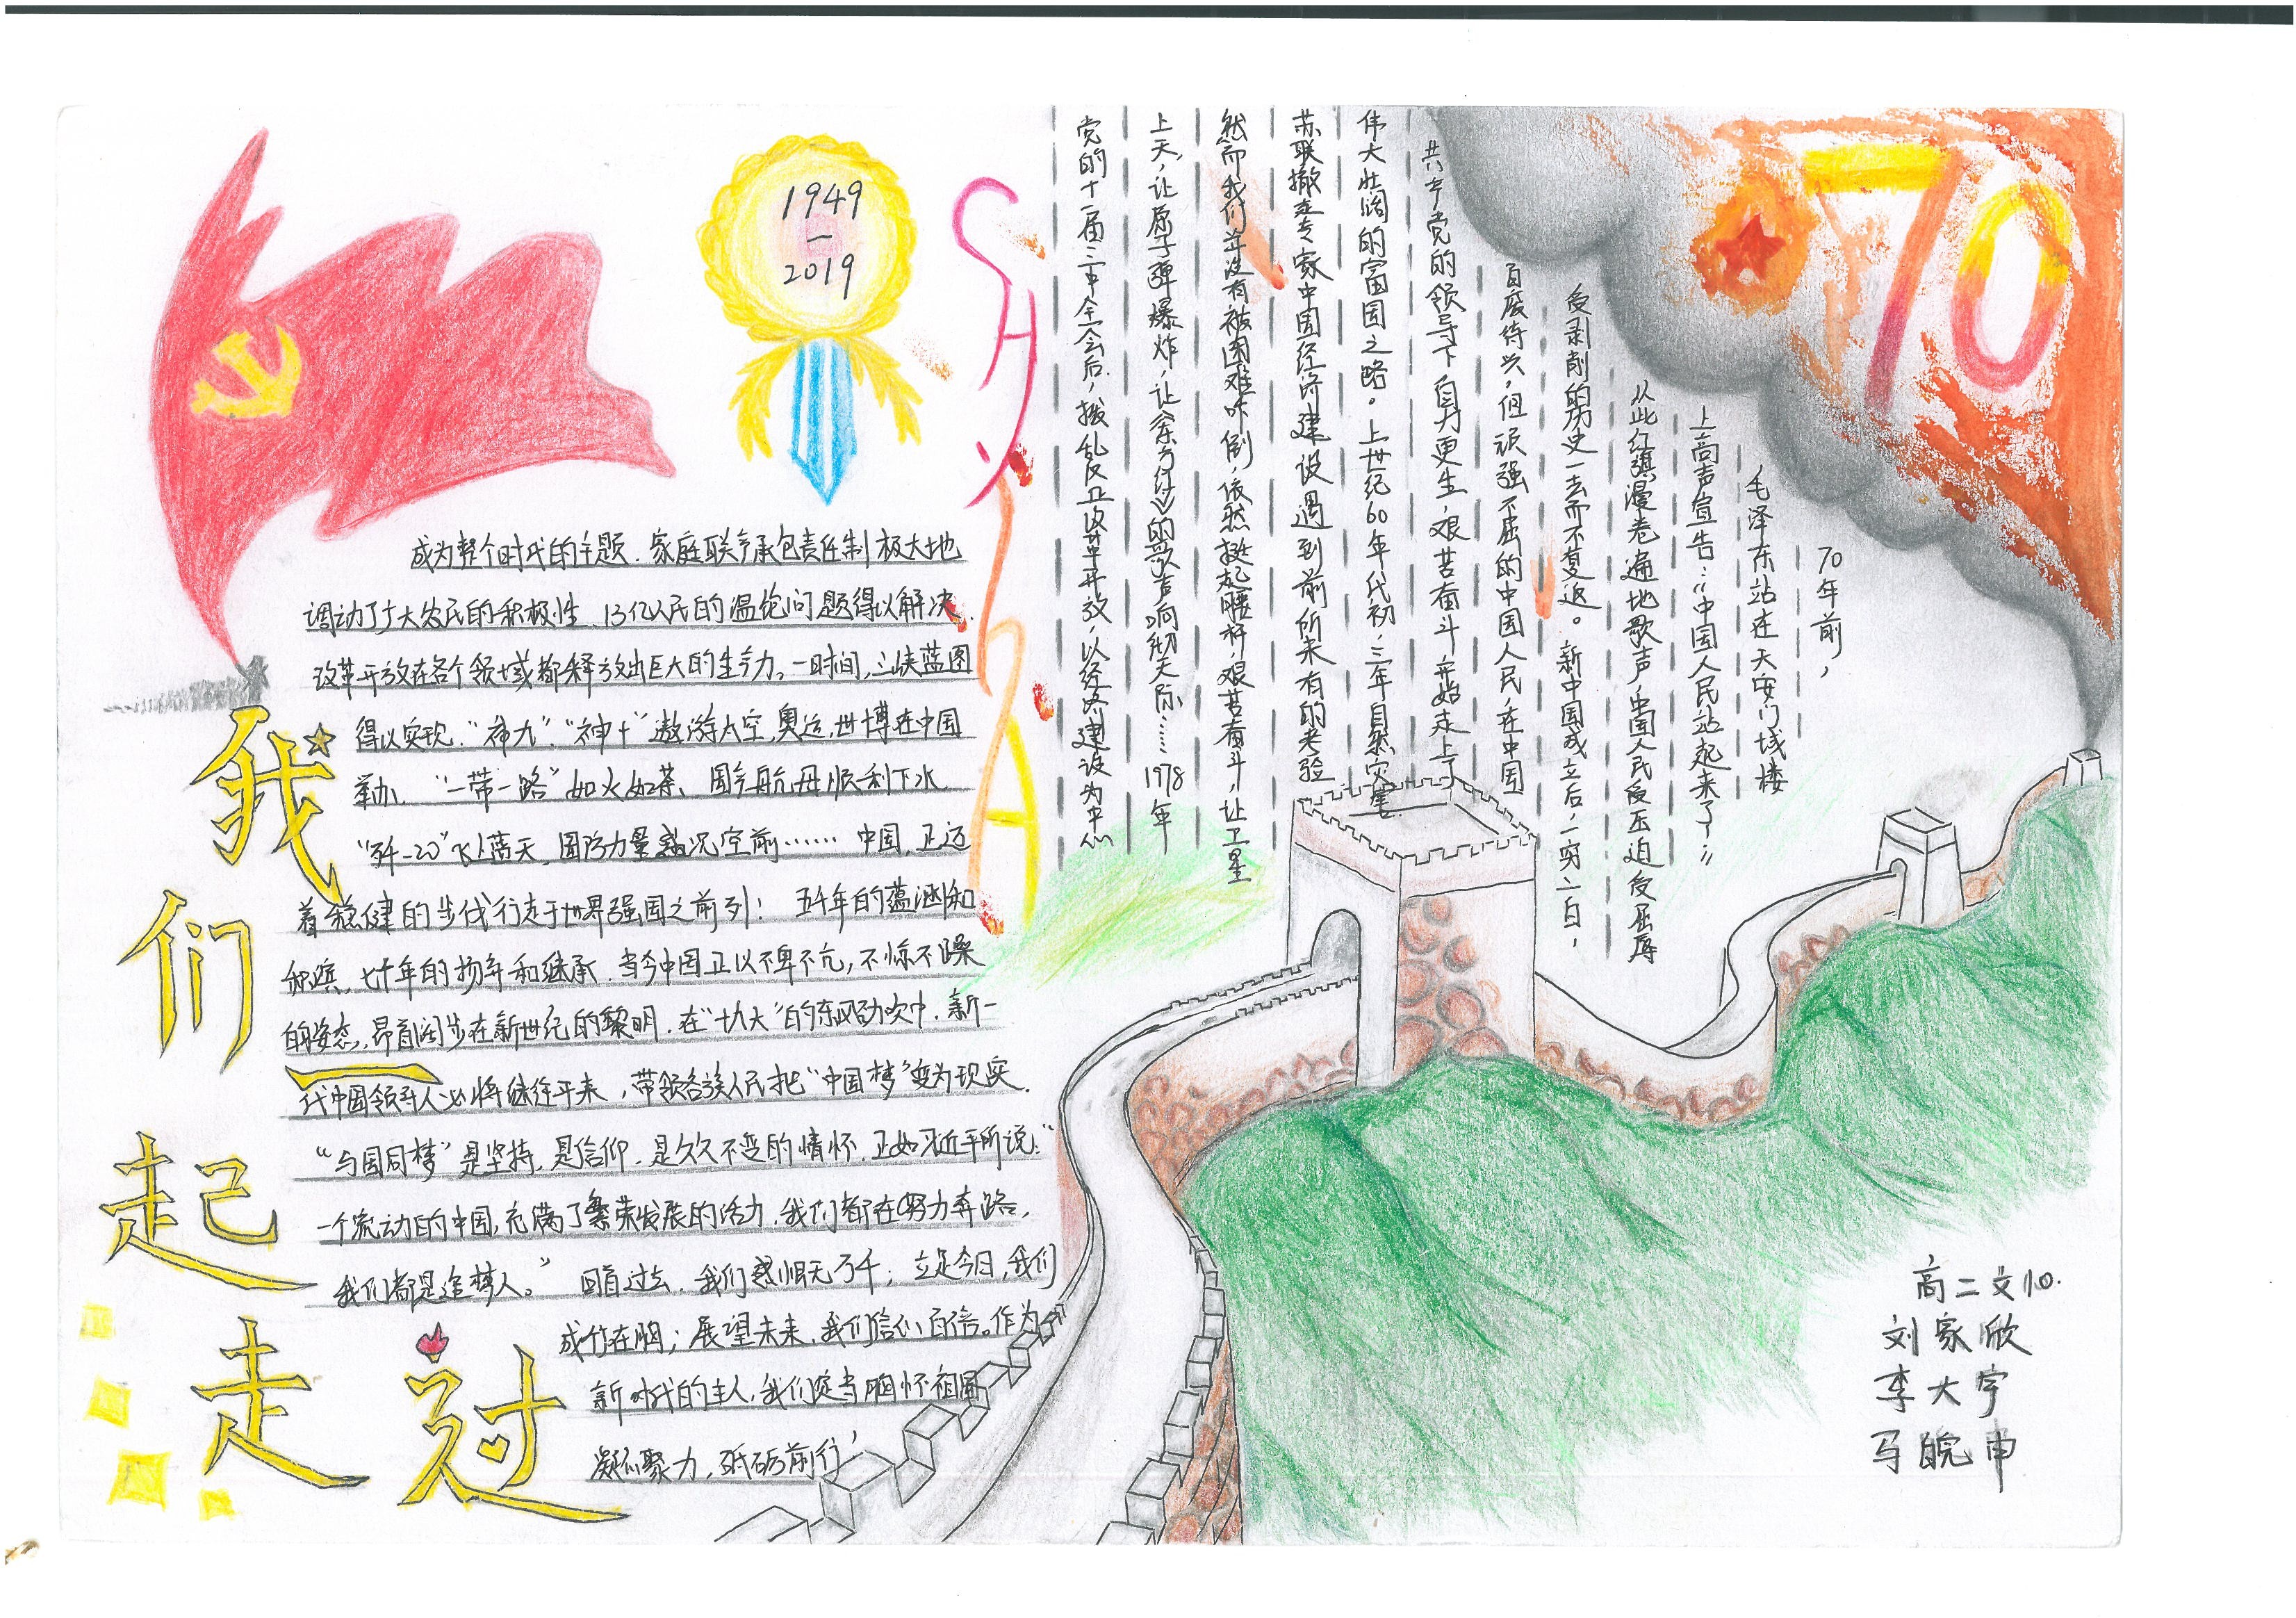 1949
—
2019
CHINA
70
70年前，
毛泽东站在天安门城楼
上高声宣告：“中国人民站起来了！”
从此红旗漫卷遍地歌声中国人民受压迫受屈辱
受剥削的历史一去而不复返。新中国成立后，一穷二白，
百废待兴，但顽强不屈的中国人民，在中国
共产党的领导下自力更生，艰苦奋斗，开始走上了
伟大壮阔的富国之路。上世纪60年代初，三年自然灾害
苏联撤走专家中国经济建设遇到前所未有的考验
然而我们并没有被困难吓倒，依然挺起腰杆，艰苦奋斗，让卫星
上天，让原子弹爆炸，让《东方红》的歌声响彻天际……1978年
党的十一届三中全会后，拨乱反正改革开放，以经济建设为中心
成为整个时代的主题，家庭联产承包责任制极大地
调动了广大农民的积极性，13亿人民的温饱问题得以解决，
改革开放在各个领域都释放出巨大的生产力。一时间，三峡蓝图
得以实现，“神九”“神十”遨游太空，奥运，世博在中国
举办，“一带一路”如火如荼，国产航母顺利下水，
“歼-20”飞入蓝天，国防力量盛况空前……中国，正迈
着稳健的步伐行走于世界强国之前列！五千年的蕴涵和
积淀，七十年的扬弃和继承，当今中国正以不卑不亢，不惊不躁
的姿态，昂首阔步在新世纪的黎明，在“十九大”的东风劲吹中，新一
代中国领导人必将继往开来，带领各族人民把“中国梦”变为现实
“与国同梦”是坚持，是信仰，是久久不变的情怀，正如习近平所说：“
一个流动的中国，充满了繁荣发展的活力，我们都在努力奔跑，
我们都是追梦人。”回首过去，我们感慨万千；立足今日，我们
成竹在胸；展望未来，我们信心百倍。作为
新时代的主人，我们应当胸怀祖国
凝心聚力，砥砺前行，
我
们
一
起
走
过
高二文10.
刘家欣
李大宇
马皖申